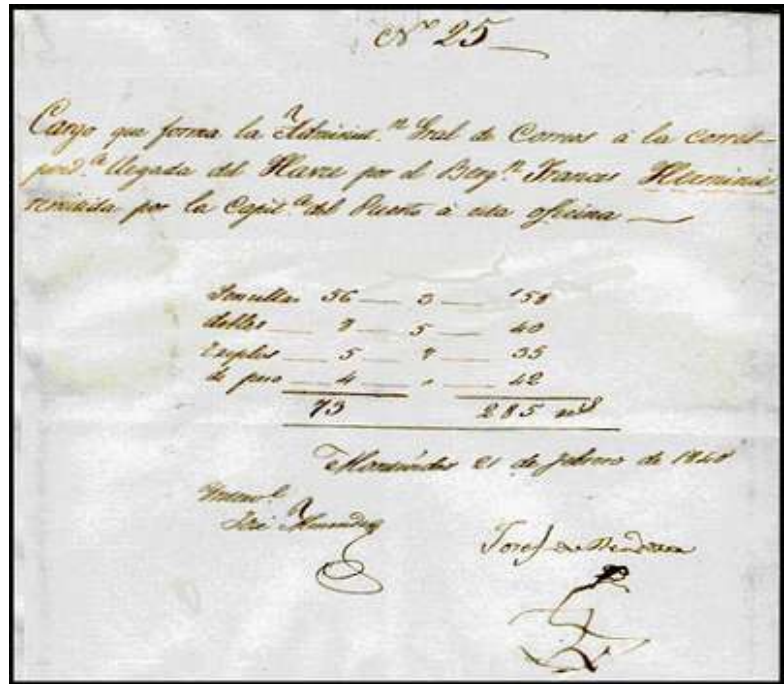 Nº 25
Cargo que forma la Administ.ⁿ Gral de Correos á la corres-
pond.ª llegada del Havre por el Berg.ⁿ Frances Herminie
remitida por la Capit.ª del Puerto á esta oficina
Sencillas 56 3
dobles 8 5 40
triples 5 7 35
de peso 4 " 42
73 285 rs
Montevideo 21 de febrero de 1840
José